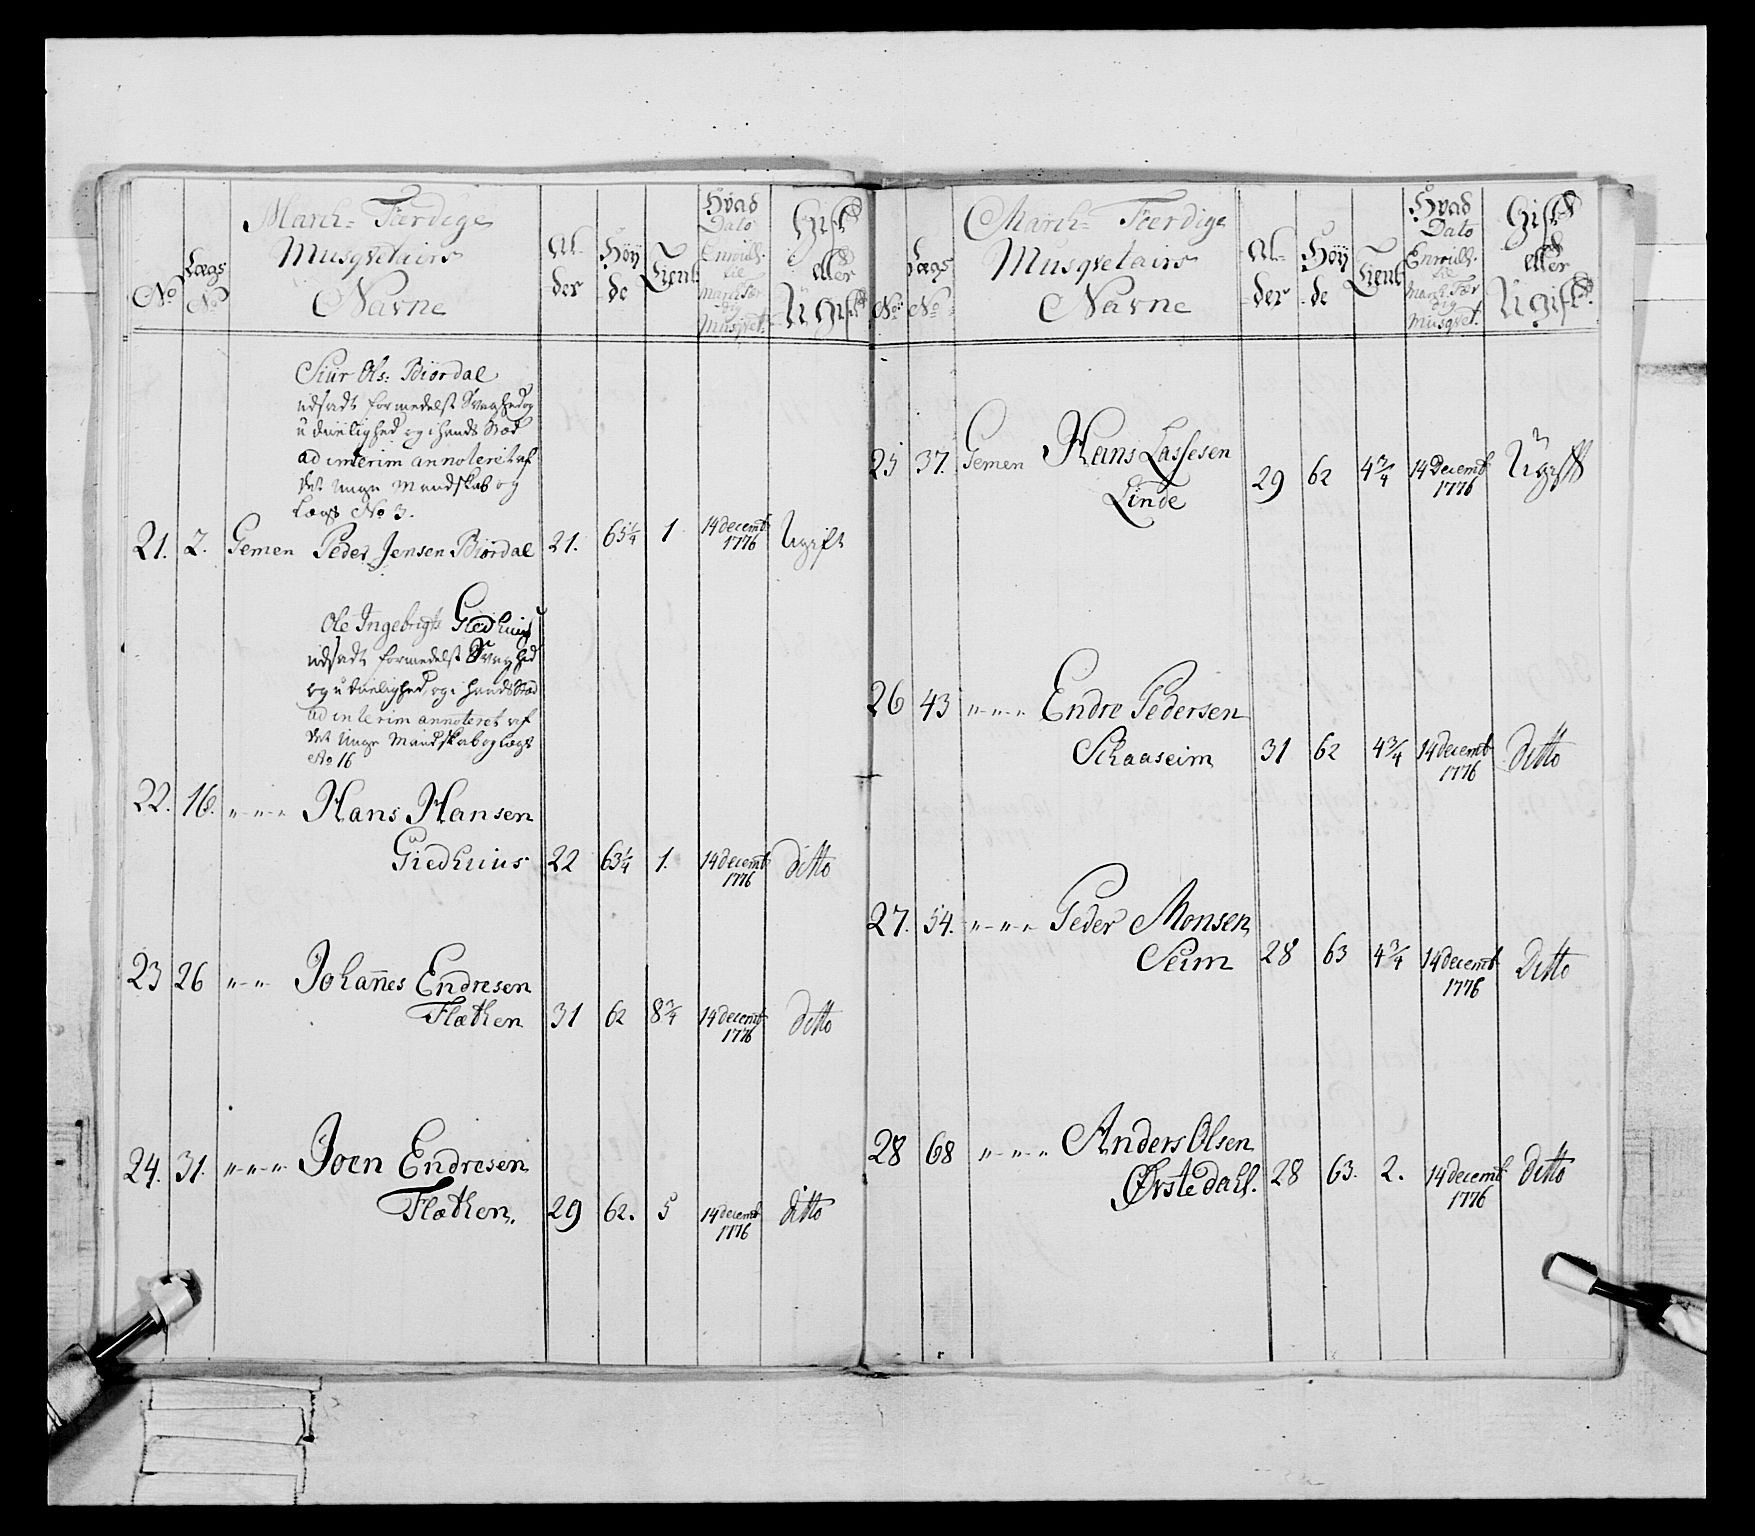 No
Lægs No
March= Færdige
Musqvetairs
Navne
Al-
der
Høy
de
Tient
Hvad
Dato
Enroull.
til
March Fær
dig
Musqvet.
Gift
eller
Ugift
Siur Ols: Biørdal
udsadt formedelst Svaghed og
uduelighed og i hands Stæd
ad interim annoteret af
det unge Mandskab og
Lægs No 3.
21. 2. Gemen Peder Jensen Biørdal 21. 65¼ 1 14 decemb 1776 Ugift
Ole Ingebrigts Giedhuus
udsadt formedelst Svaghed
og uduelighed, og i hands Stæd
ad interim annoteret af
det unge Mandskab og Lægs
No 16
22. 16. " - " - " Hans Hansen
Giedhuus 22 63¼ 1. 14 decemb 1776 ditto
23 26 " - " Johannes Endresen
Flæthen 31 62 8¾ 14 decemb 1776 ditto
24. 31. " - " - " Joen Endresen
Flæthen. 29 62. 5 14 decemb 1776 ditto
No
Lægs No
March= Færdige
Musqvetairs
Navne
Al-
der
Høy
de
Tient
Hvad
Dato
Enroull.
til
March Fær
dig
Musqvet.
Gift
eller
Ugift.
25 37. Gemen Hans Lassesen
Linde 29 62 4¾ 14 Decemb 1776 Ugift
26 43 " - " - " Endre Pedersen
Schaaseim 31 62 4¾ 14 decemb 1776 ditto
27. 54. " - " - " Peder Monsen
Seim 28 63 4¾ 14 decemb 1776 Ditto
28 68 " - " - " Anders Olsen
Ørstedahl. 28 63. 2. 14 decemb 1776 ditto